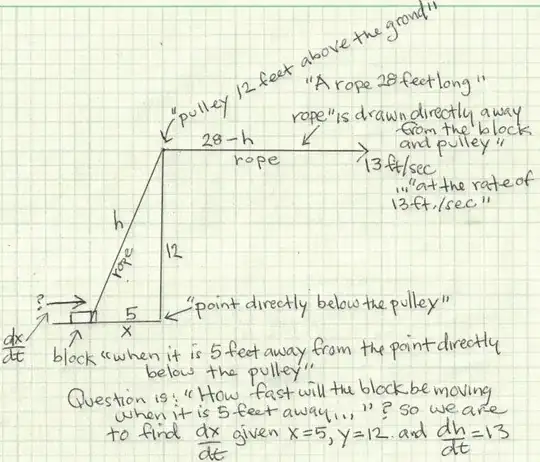 "pulley 12 feet above the grond"
"A rope 28 feet long"
28-h
rope
rope "is drawn directly away
from the block
and pulley"
13 ft/sec
..."at the rate of
13 ft./sec"
h
rope
12
?
5
x
"point directly below the pulley"
dx
dt
block "when it is 5 feet away from the point directly
below the pulley"
Question is: "How fast will the block be moving
when it is 5-feet away..." ? so we are
to find dx/dt given x=5, y=12 and dh/dt=13